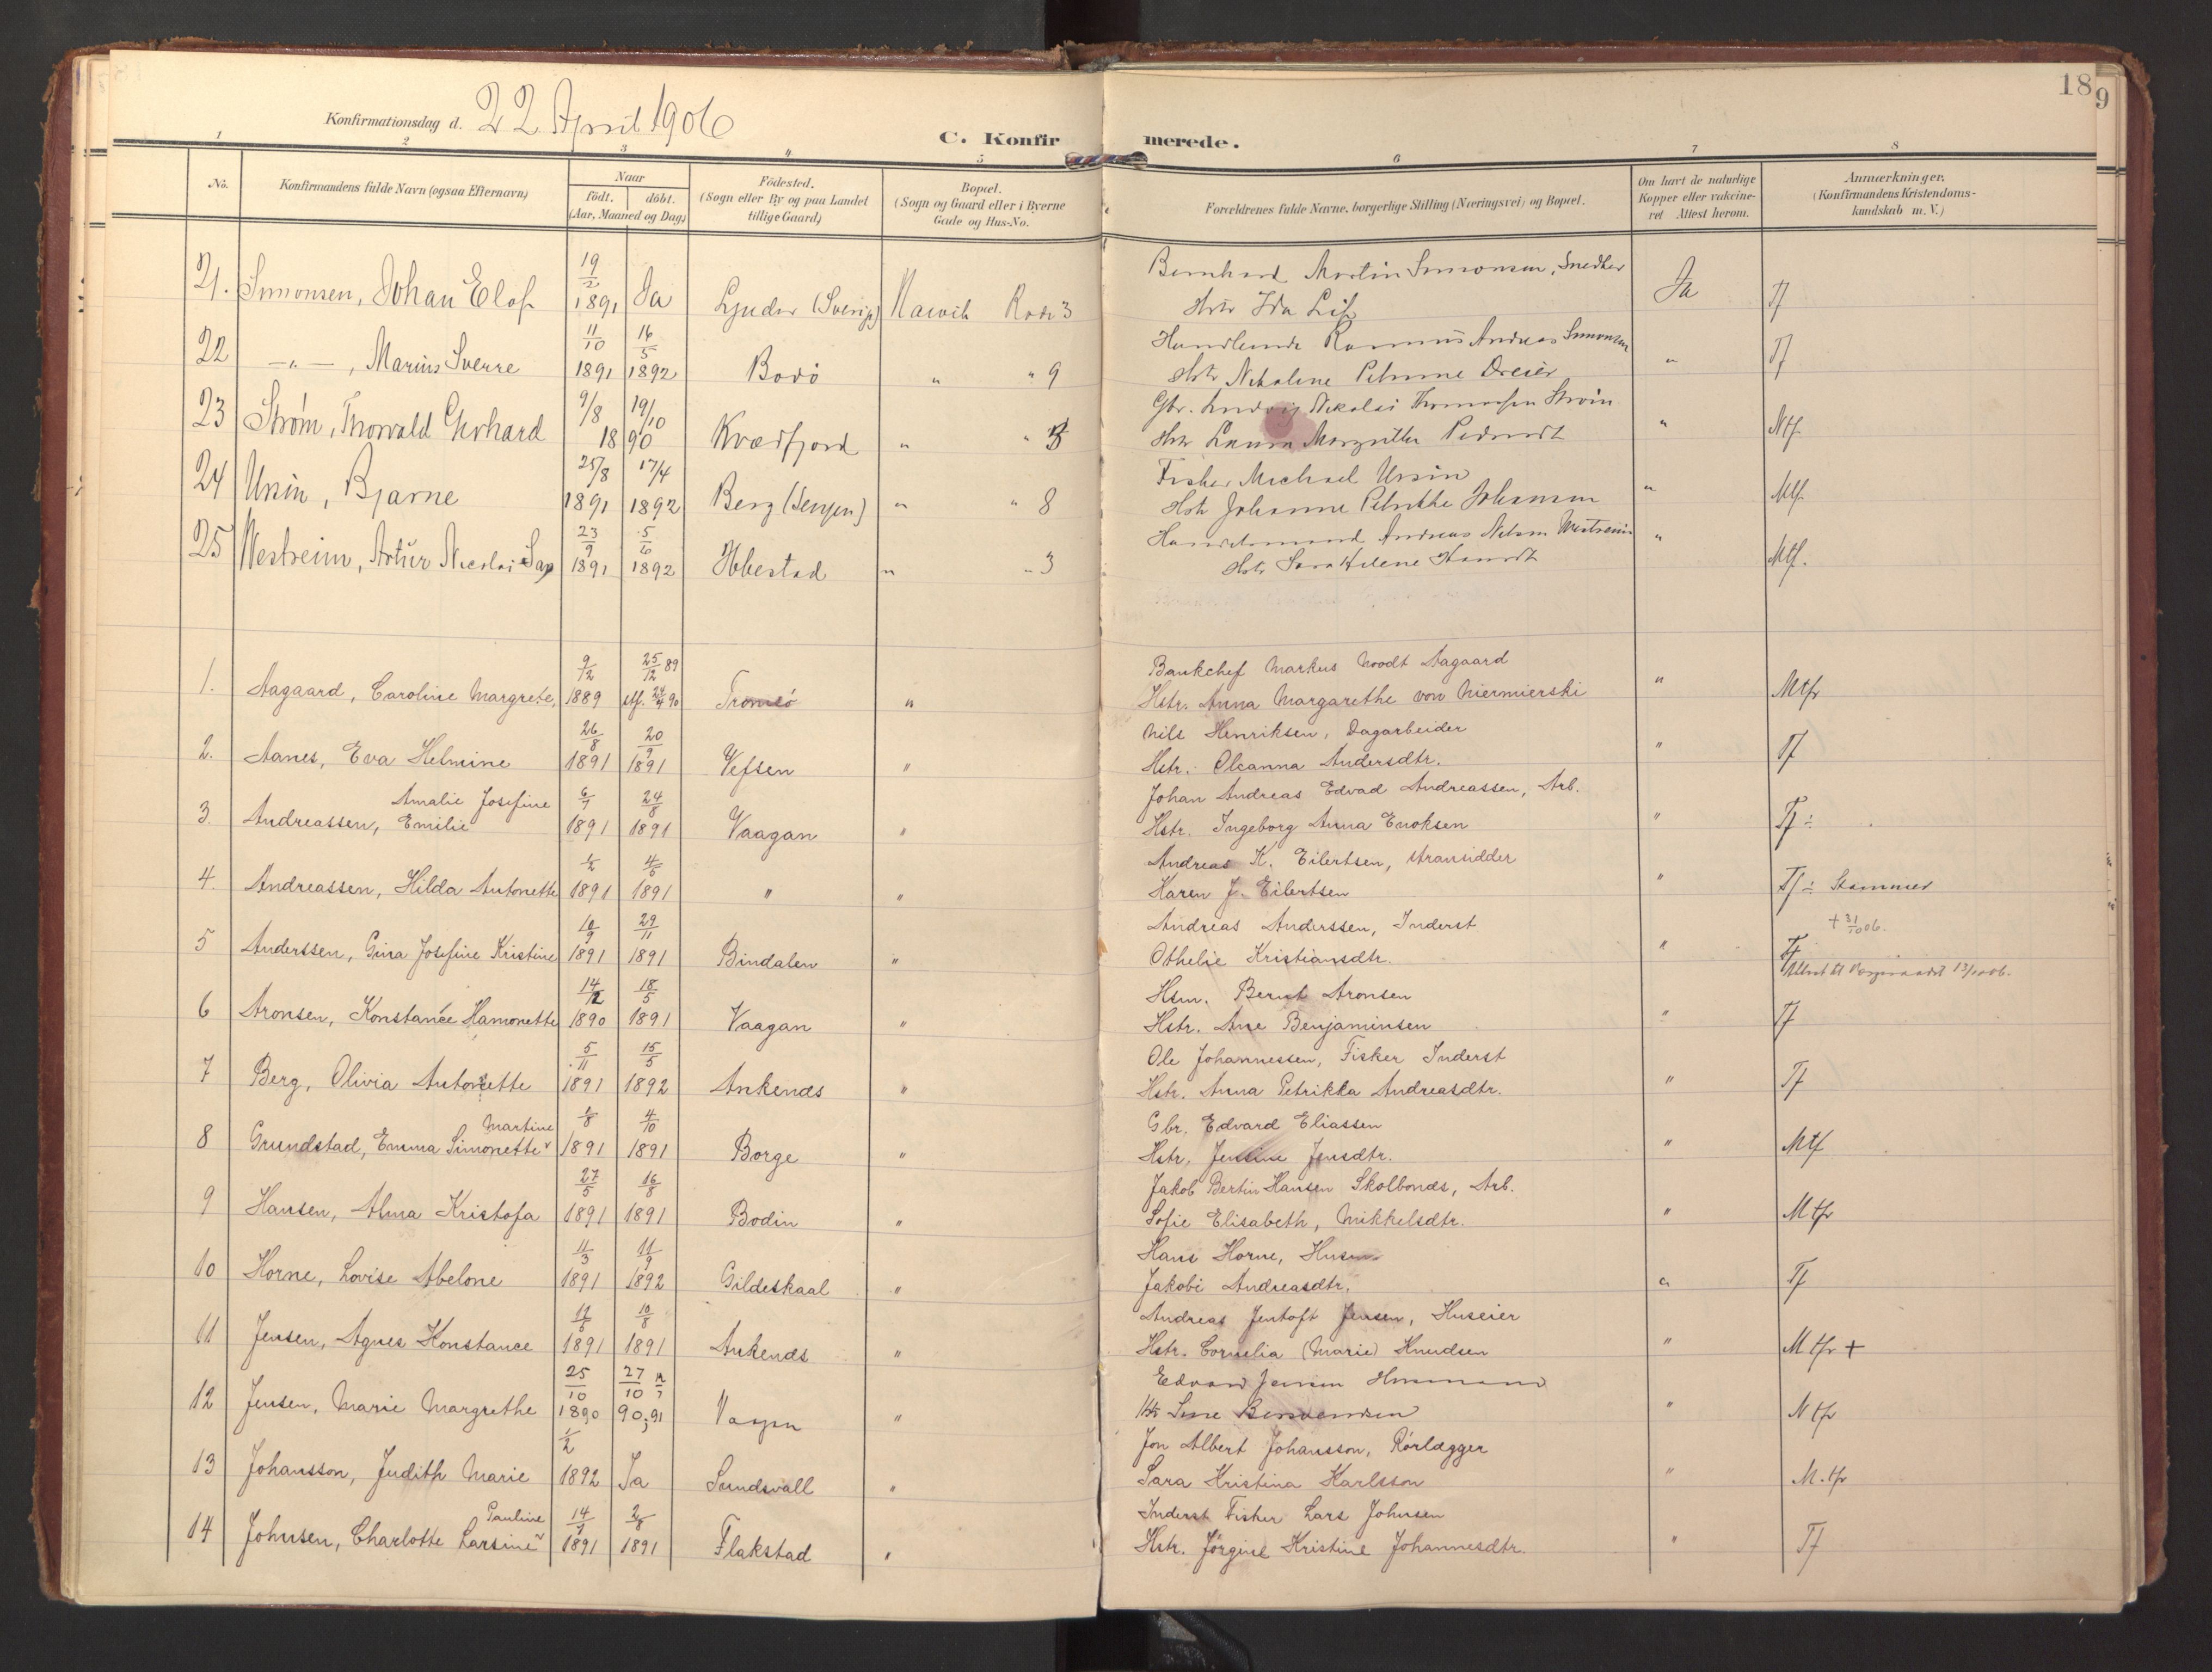 189
Konfirmationsdag d. 22 April 1906
C. Konfirmerede.
1 2 3 4 5 6 7 8
No.
Konfirmandens fulde Navn (ogsaa Efternavn)
Naar
födt. döbt.
(Aar, Maaned og Dag)
Födested.
(Sogn eller By og paa Landet
tillige Gaard)
Bopæl.
(Sogn og Gaard eller i Byerne
Gade og Hus-No.
Forældrenes fulde Navne, borgerlige Stilling (Næringsvei) og Bopæl.
Om havt de naturlige
Kopper eller vakcine-
ret Attest herom.
Anmærkninger.
(Konfirmandens Kristendoms-
kundskab m. V.)
21. Simonsen, Johan Elof 19/2 1891 Ja (Sverige) Narvik Rode 3
Bernhard Martin Simonsen, Snedker
Hstr Ida Ja Tf
22 —„— , Marius Sverre 11/10 1891 16/5 1892 Bodö " " 9
Handlende Rasmus Andreas Simonsen
Hstr Nekoline Petrine Dreier " Tf
23 Strøm, Thorvald Gerhard 9/8 19/10 1890 Kvædfjord " "
Gbr. Ludvig Nikolai Thomassen Strøm
Hstr Laura Margrethe " Ntf.
24 Ursin, Bjarne 25/8 1891 17/4 1892 Berg (Senjen) " " 8
Fisker Michael Ursin
Hstr Johanna " Mtf.
25 Westreim, Artur Nicolai 23/9 1891 5/6 1892 Ibbestad " " 3
Andreas Westreim
Hstr Sara Helene " Mtf.
1. Aagaard, Caroline Margrete, 9/12 1889 25/12 89 stf. 24/4 90 Tromsö "
Bankchef Markus Noodt Aagaard
Hstr. Anna Margarethe von Niermierski " Mtfr
2. Aanes, Eva Helmine 26/8 1891 20/9 1891 Vefsen "
Nils Henriksen, Dagarbeider
Hstr. Oleanna Andersdtr. " Tf
3. Andreassen, Amalie Josefine Emilie 6/7 1891 24/8 1891 Vaagan "
Johan Andreas Edvad Andreassen, Arb.
Hstr. Ingeborg Anna Enoksen " Tf ÷
4. Andreassen, Hilda Antonette 1/2 1891 4/5 1891 " "
Andreas K. Eilertsen, Stransidder
Karen J. Eilertsen " Tf ÷ Stammer
5 Anderssen, Gina Josefine Kristine 10/9 1891 29/11 1891 Bindalen "
Andreas Anderssen, Inderst + 31/10 06.
Othelie Kristiansdtr. " Tf
6 Aronsen, Konstance Hamonette 14/12 1890 18/5 1891 Vaagan "
Hsm. Bernt Aronsen
Hstr. Ane Benjaminsen " Tf
7 Berg, Olivia Antonette 5/11 1891 15/5 1892 Ankenes "
Ole Johannessen, Fisker Inderst
Hstr. Anna Petrikka Andreasdtr. " Tf
8 Grundstad, Emma Simonette Martine 1/8 1891 4/10 1891 Borge "
Gbr. Edvard Eliassen
Hstr. Jensine Jensdtr. " Mtf
9 Hansen, Alma Kristofa 27/5 1891 16/8 1891 Bodin "
Jakob Bertin Hansen Skolbones, Arb.
Sofie Elisabeth, Mikkelsdtr. " Mtfr
10 Horne, Lovise Abelone 11/3 1891 11/9 1892 Gildeskaal "
Hans Horne, Husm.
Jakobi Andreasdtr. " Tf
11 Jensen, Agnes Konstance 17/5 1891 10/8 1891 Ankenes "
Andreas Jentoft Jensen, Huseier
Hstr. Cornelia (Marie) Knudsen " Mtfr +
12 Jensen, Marie Margrethe 25/10 1890 27/10 90, 91 Vagan "
Edvard Jensen Husmand
Hstr Lene " Ntfr
13 Johansson, Judith Marie 1/2 1892 Ja Sundsvall "
Jon Albert Johansson, Rörlægger
Sara Kristina Karlsson " M.tfr
14 Johnsen, Charlotte Larsine Pauline 14/7 1891 2/8 1891 Flakstad "
Inderst Fisker Lars Johnsen
Hstr. Jörgine Kristine Johannesdtr. " Tf